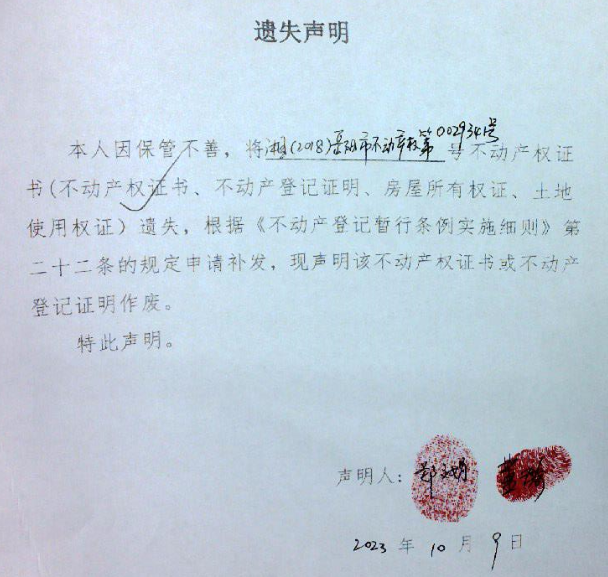 遗失声明
本人因保管不善，将湘(2018)岳阳市不动产权第002934号号不动产权证
书(不动产权证书、不动产登记证明、房屋所有权证、土地
使用权证）遗失，根据《不动产登记暂行条例实施细则》第
二十二条的规定申请补发，现声明该不动产权证书或不动产
登记证明作废。
特此声明。
声明人：
2023 年 10 月 9 日